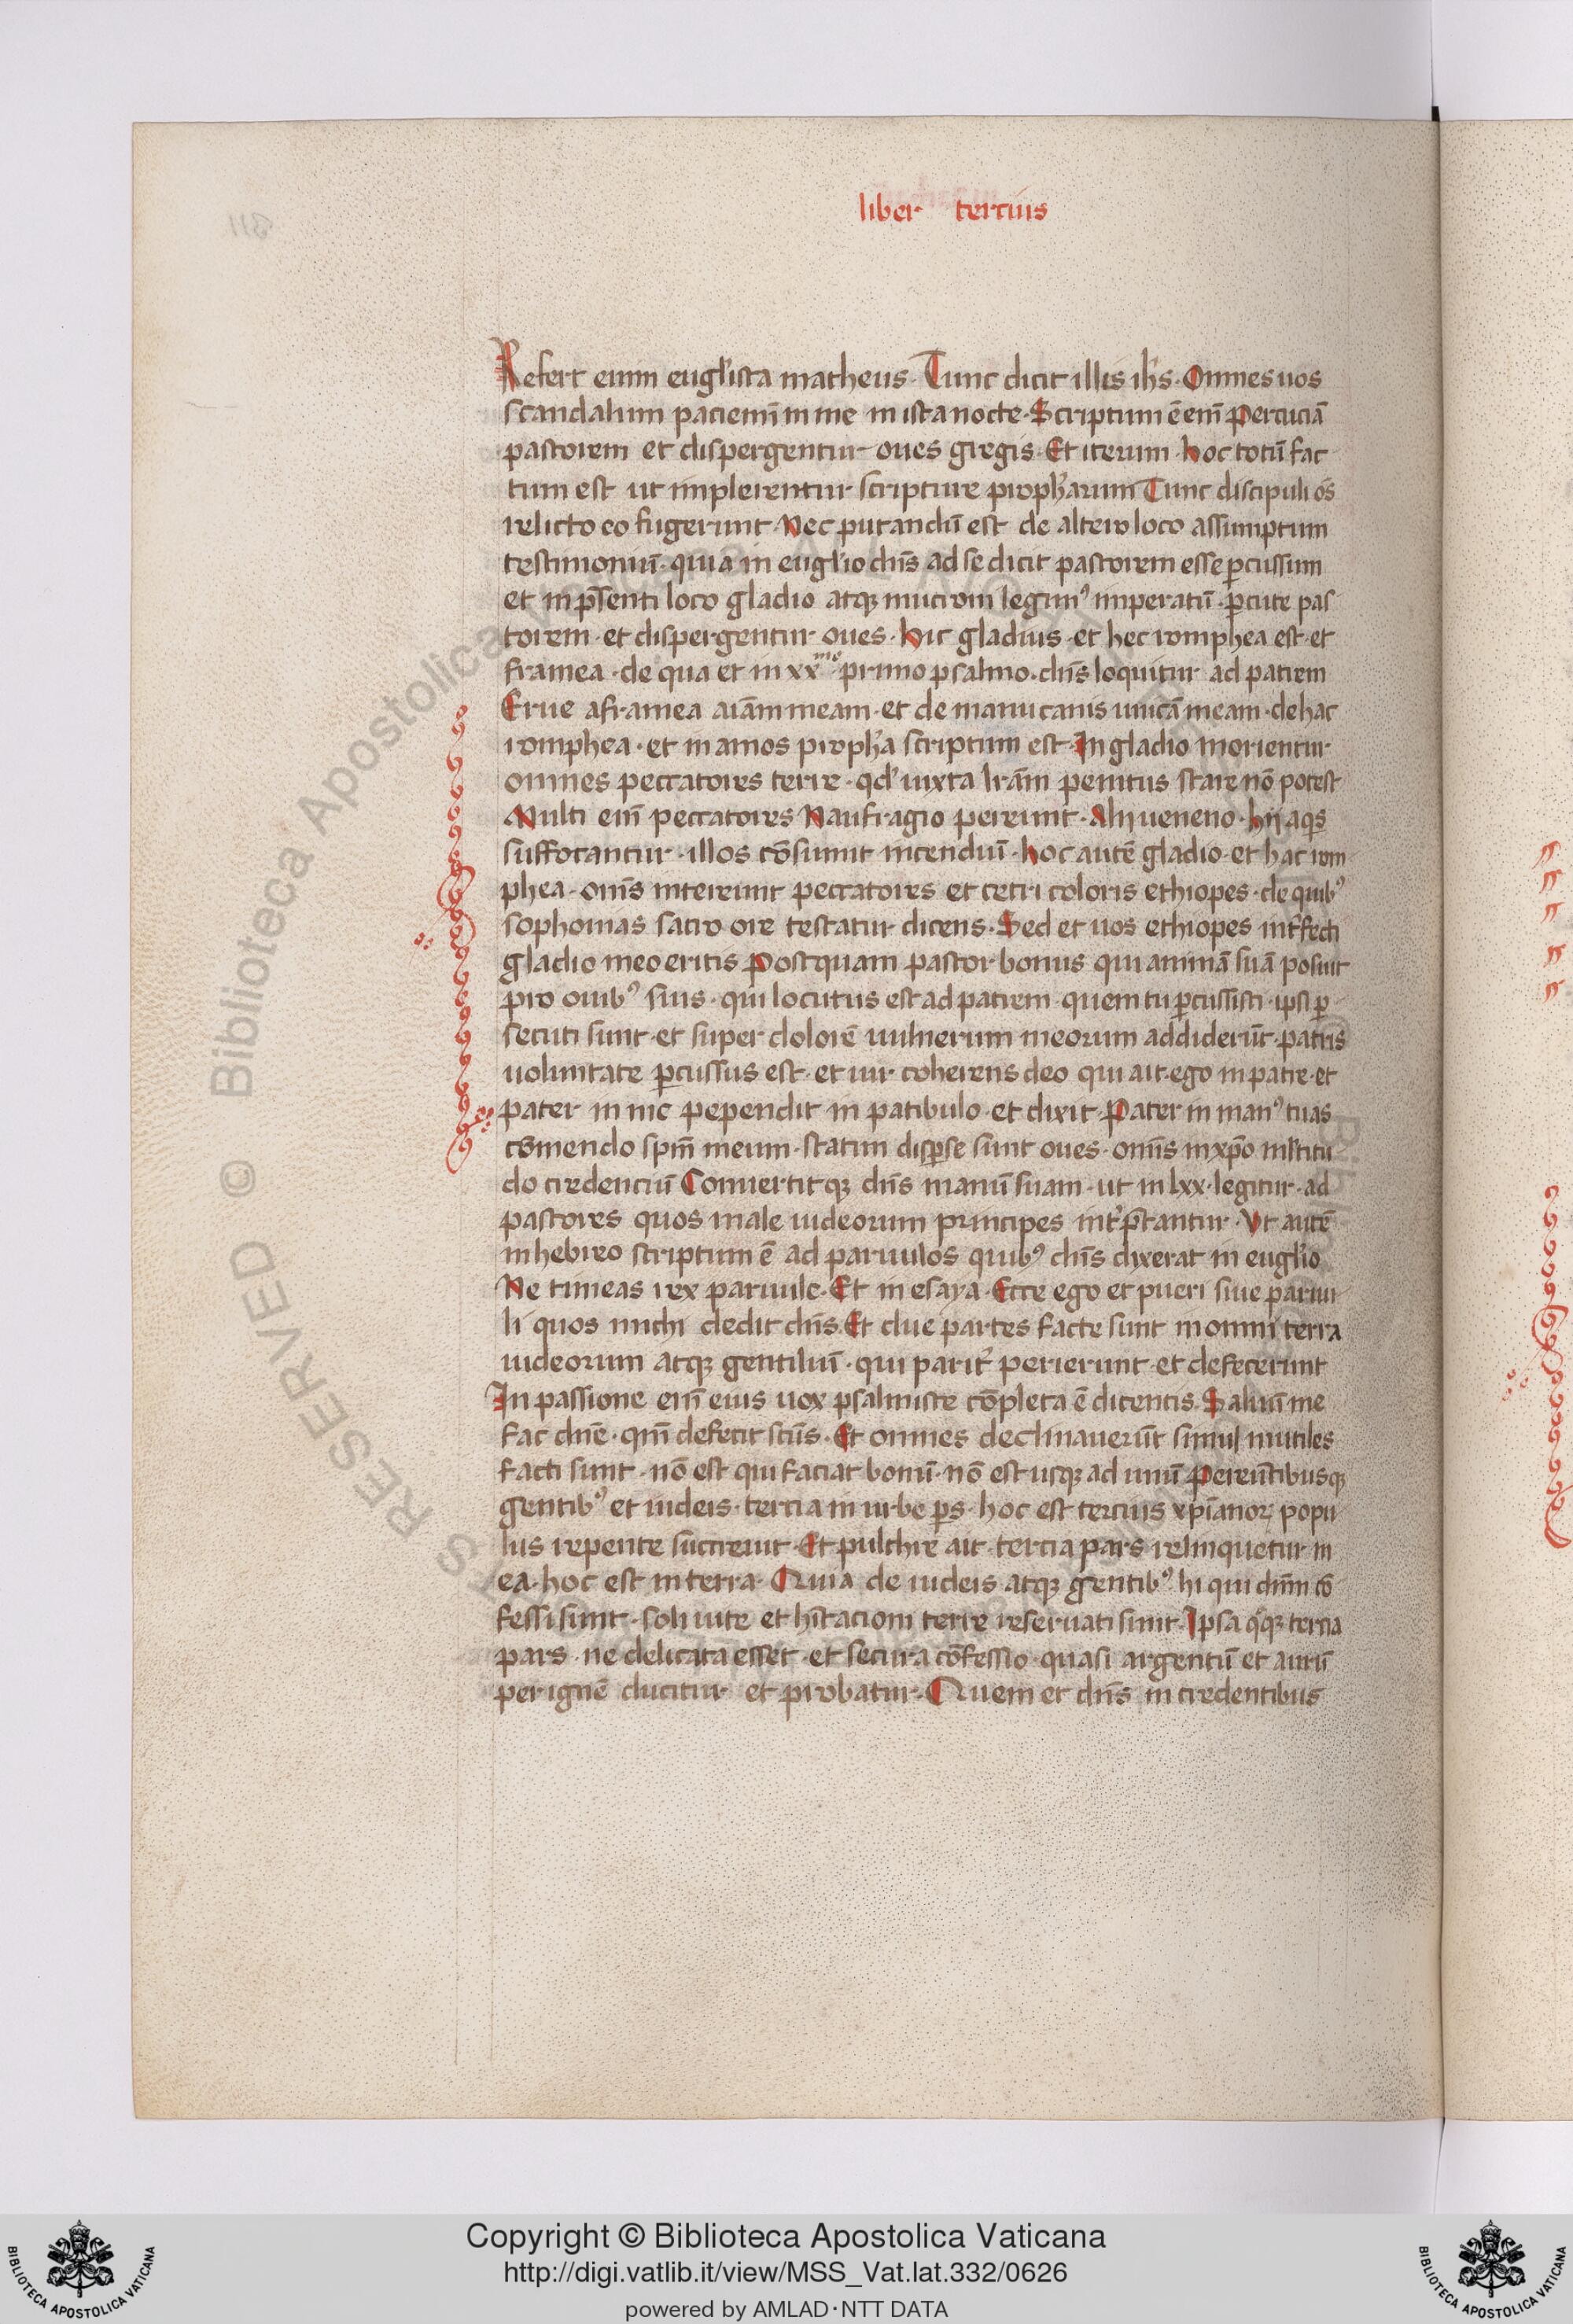 liber tercius
Refert enim eugl'ista matheus. Tunc dicit illis ih's. Omnes uos
scandalum paciemī in me in ista nocte. Scriptum ē enī Percuciā
pastorem et dispergentur oues gregis. Et iterum hoc totū fac
tum est ut implerentur scripture proph'arum Tunc discipuli oēs
relicto eo fugerunt. Nec putandū est de altero loco assumptum
testimoniū. quia in eugl'io dn̄s ad se dicit pastorem esse ꝑcussum
et in p̄senti loco gladio atqꝫ mucroni legimꝰ imperatū. ꝑcute pas
torem. et dispergentur oues. Hic gladius et hec romphea est et
framea. de qua et in xxmo primo psalmo. dn̄s loquitur ad patrem
Erue a framea aīam meam. et de manu canis unicā meam. de hac
romphea. et in amos proph'a scriptum est. In gladio morientur
omnes peccatores terre. qd' iuxta lr̄am penitus stare nō potest
Multi enī peccatores Naufragio pereunt. Alij ueneno. hij aqis
suffocantur. illos cōsumit incendiū. hoc autē gladio et hac rom
phea. om̄s intereunt peccatores et tetri coloris ethiopes. de quibꝰ
sophonias sacro ore testatur dicens. Sed et uos ethiopes int'fecti
gladio meo eritis Postquam pastor bonus qui animā suā posuit
pro ouibꝰ suis. qui locutus est ad patrem quem tu ꝑcussisti. ipsi ꝑ
secuti sunt. et super dolorē uulnerum meorum addiderūt. patris
uoluntate ꝑcussus est. et uir coherens deo qui ait. ego in patre. et
pater in me pependit in patibulo. et dixit. Pater in manꝰ tuas
cōmendo spm̄ meum. statim disꝑse sunt oues. om̄s in xp̄o ml'titu
do credenciū Conuertitqꝫ dn̄s manū suam. ut in lxx. legitur. ad
pastores quos male iudeorum principes int'p̄tantur. Vt autē
in hebreo scriptum ē ad paruulos quibꝰ dn̄s dixerat in eugl'io
Ne timeas rex paruule. Et in esaya. Ecce ego et pueri siue paruu
li quos michi dedit dn̄s. Et due partes facte sunt in omni terra
iudeorum atqꝫ gentiliū. qui parit' perierunt et defecerunt
In passione enī eius uox psalmiste cōpleta ē dicentis. Saluū me
fac dn̄e. qm̄ defecit sc̄us. Et omnes declinauerūt simul inutiles
facti sunt. nō est qui faciat bonū. nō est usqꝫ ad unū Pereūtibusqꝫ
gentibꝰ et iudeis. tercia in urbe ꝑs. hoc est tercius xpīanoꝝ popu
lus repente succreuit. Et pulchre ait. tercia pars relinquetur in
ea. hoc est in terra. Quia de iudeis atqꝫ gentibꝰ. hi qui dn̄m cō
fessi sunt. soli uite et hītacioni terre reseruati sunt. Ipsa qqꝫ tercia
pars. ne delicata esset. et secura cōfessio. quasi argentū et aurū
per ignē ducitur et probatur. Quem et dn̄s in credentibus
Copyright © Biblioteca Apostolica Vaticana
http://digi.vatlib.it/view/MSS_Vat.lat.332/0626
powered by AMLAD·NTT DATA